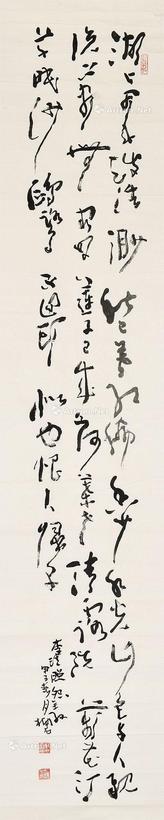 湖上風來波浩渺秋已暮紅稀香少水光山色與人親
說不盡無窮好蓮子已成荷葉老清露洗蘋花汀
草眠沙鷗鷺不回頭似也恨人歸早
李清照怨王孫